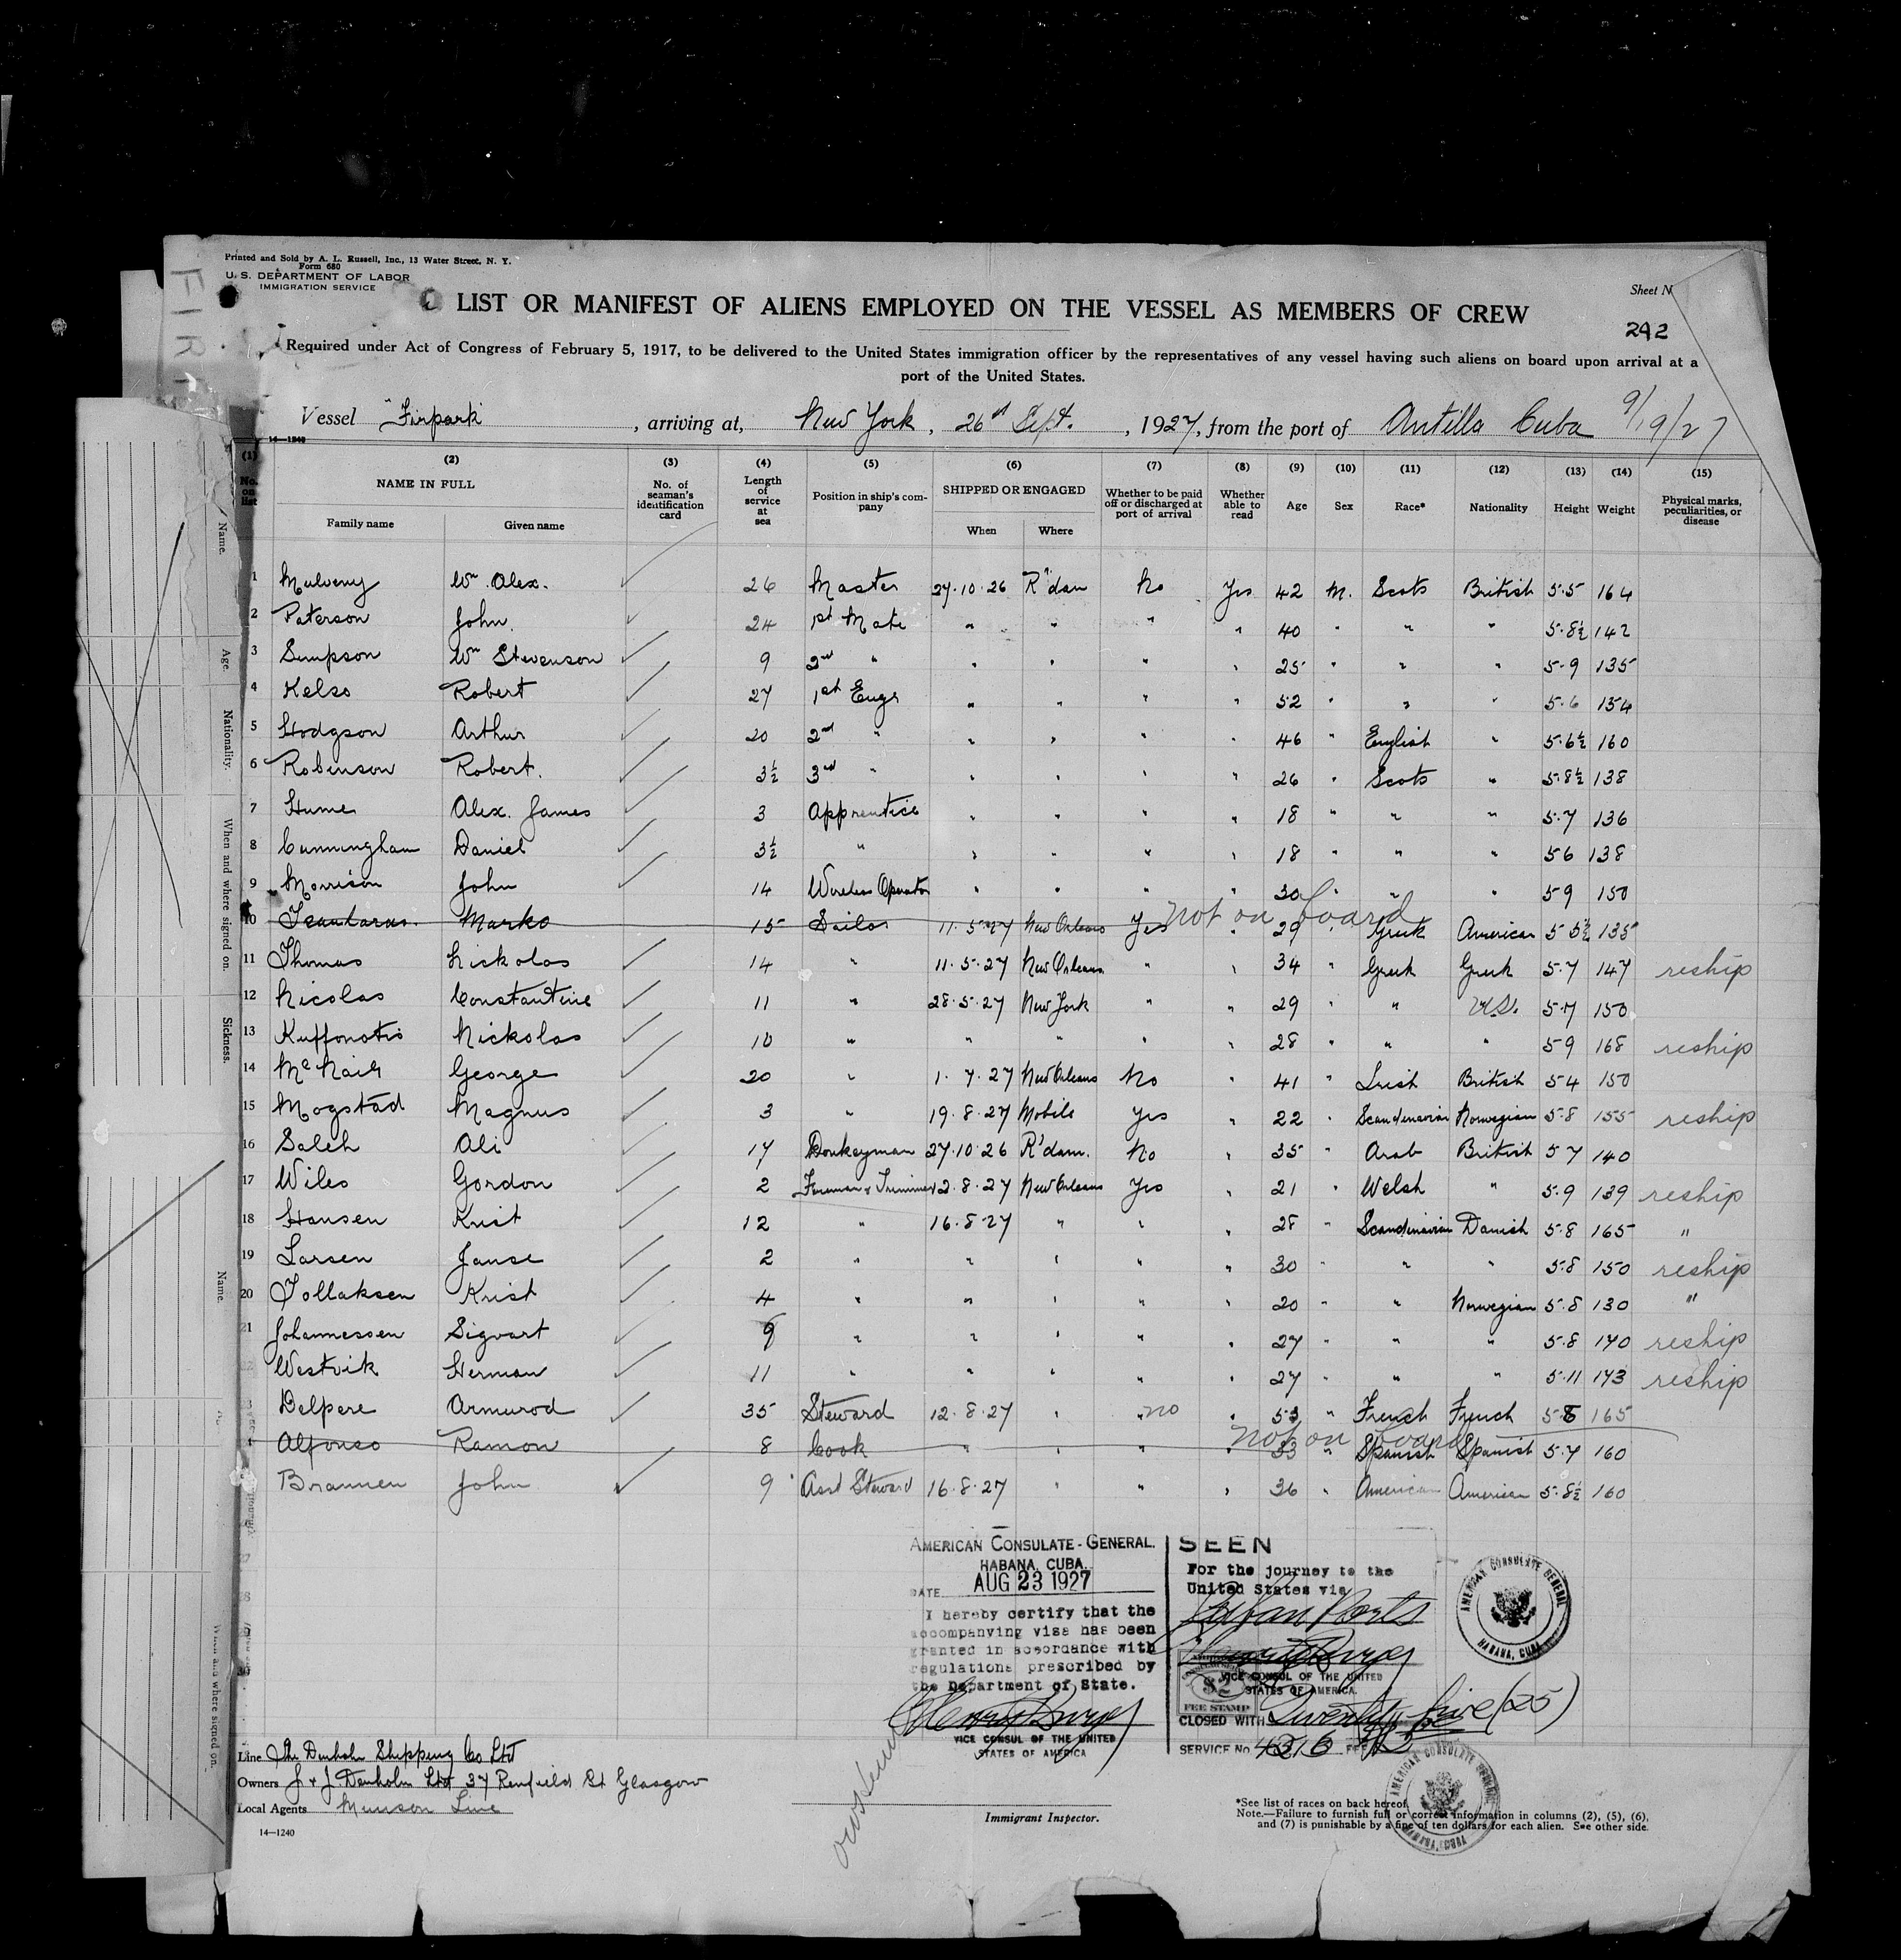 Printed and Sold by A. L. Russell, Inc., 13 Water Street, N. Y.
Form 680
U. S. DEPARTMENT OF LABOR
IMMIGRATION SERVICE
Sheet N
LIST OR MANIFEST OF ALIENS EMPLOYED ON THE VESSEL AS MEMBERS OF CREW
292
Required under Act of Congress of February 5, 1917, to be delivered to the United States immigration officer by the representatives of any vessel having such aliens on board upon arrival at a
port of the United States.
Vessel "Firpark" , arriving at, New York, 26th Sept. , 1927, from the port of Antilla Cuba 9/19/27
14—1240
(1) No. on list (2) NAME IN FULL Family name Given name (3) No. of seaman's identification card (4) Length of service at sea (5) Position in ship's company (6) SHIPPED OR ENGAGED When Where (7) Whether to be paid off or discharged at port of arrival (8) Whether able to read (9) Age (10) Sex (11) Race* (12) Nationality (13) Height (14) Weight (15) Physical marks, peculiarities, or disease
1 Mulveny Wm. Alex. 26 Master 27.10.26 R'dam No Yes 42 M. Scots British 5.5 164
2 Paterson John 24 1st Mate " " " " 40 " " " 5.8½ 142
3 Simpson Wm Stevenson 9 2nd " " " " " 25 " " " 5.9 135
4 Kelso Robert 27 1st Engr " " " " 52 " " " 5.6 154
5 Hodgson Arthur 20 2nd " " " " " 46 " English " 5.6½ 160
6 Robinson Robert. 3½ 3rd " " " " " 26 " Scots " 5.8½ 138
7 Hume Alex. James 3 Apprentice " " " " 18 " " " 5.7 136
8 Cunningham Daniel 3½ " " " " " 18 " " " 5 6 138
9 Morrison John 14 Wireless Operator " " " " 30 " " " 5 9 150
10 Marko 15 Sailor 11.5.27 New Orleans Yes not on board " 29 " Greek American 5 5½ 135
11 Thomas Nickolas 14 " 11.5.27 New Orleans " " 34 " Greek Greek 5.7 147 reship
12 Nicolas Constantine 11 " 28.5.27 New York " " 29 " " U.S. 5.7 150
13 Kuffonotis Nickolas 10 " " " " " 28 " " " 5 9 168 reship
14 McNair George 20 " 1.7.27 New Orleans No " 41 " Irish British 5 4 150
15 Mogstad Magnus 3 " 19.8.27 Mobile Yes " 22 " Scandinavian Norwegian 5.8 155 reship
16 Saleh Ali 17 Donkeyman 27.10.26 R'dam. No " 35 " Arab British 5 7 140
17 Wiles Gordon 2 Fireman & Trimmer 12.8.27 New Orleans Yes " 21 " Welsh " 5.9 139 reship
18 Hansen Krist 12 " 16.8.27 " " " 28 " Scandinavian Danish 5.8 165 "
19 Larsen Janse 2 " " " " " 30 " " " 5.8 150 reship
20 Tollaksen Krist 4 " " " " " 20 " " Norwegian 5.8 130 "
21 Johannessen Sigvart 9 " " " " " 27 " " " 5.8 170 reship
22 Westvik Herman 11 " " " " " 27 " " " 5.11 173 reship
3 Delpere Armurod 35 Steward 12.8.27 " " no " 53 " French French 5 8 165
4 Alfonso Ramon 8 Cook " " " " not on board 33 " Spanish Spanish 5.7 160
Brannen John 9 Asst Steward 16.8.27 " " " 36 " American American 5.8½ 160
AMERICAN CONSULATE-GENERAL.
HABANA, CUBA.
DATE AUG 23 1927
I hereby certify that the
accompanying visa has been
granted in accordance with
regulations prescribed by
the Department of State.
VICE CONSUL OF THE UNITED
STATES OF AMERICA
SEEN
For the journey to the
United States via
VICE CONSUL OF THE UNITED
STATES OF AMERICA.
$2
FEE STAMP
CLOSED WITH Twenty five (25)
SERVICE No. 4316 FEE
AMERICAN CONSULATE GENERAL
HABANA, CUBA
AMERICAN CONSULATE GENERAL
HABANA, CUBA
Line The Denholm Shipping Co Ltd
Owners J. & J. Denholm Ltd 37 Renfield St Glasgow
Local Agents Munson Line
14—1240
Immigrant Inspector.
*See list of races on back hereof.
Note.—Failure to furnish full or correct information in columns (2), (5), (6),
and (7) is punishable by a fine of ten dollars for each alien. See other side.
Name.
Age.
Nationality.
When and where signed on.
Sickness.
Name.
When and where signed on.